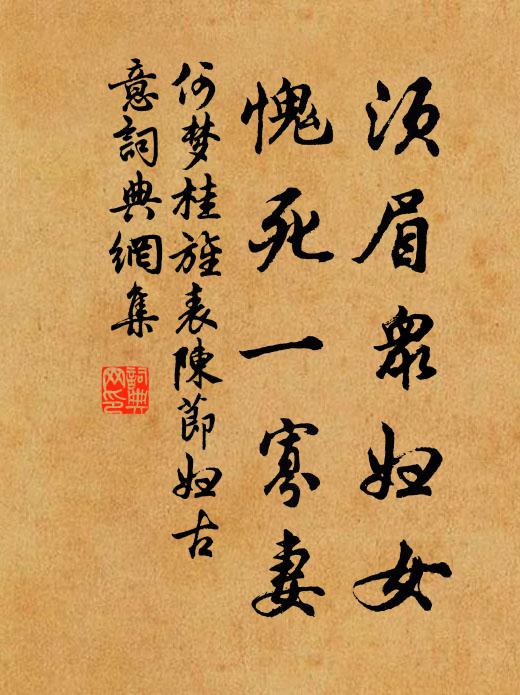 須眉眾婦女
愧死一寡妻
何梦桂旌表陳節婦古
意詞典網集
詞典
网印